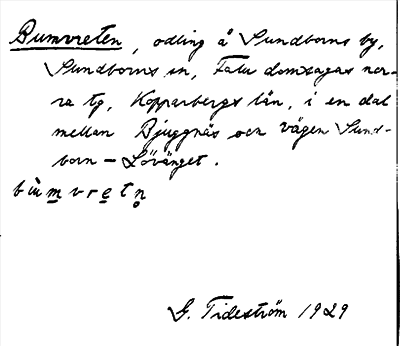 Bumvreten, odling å Sundborns by,
Sundborns sn, Falu domsagas nor-
ra tg, Kopparbergs län, i en dal
mellan Bjuggnäs och vägen Sund-
born – Lövänget.
bùm̲vre̲tn̥
G. Tideström 1929